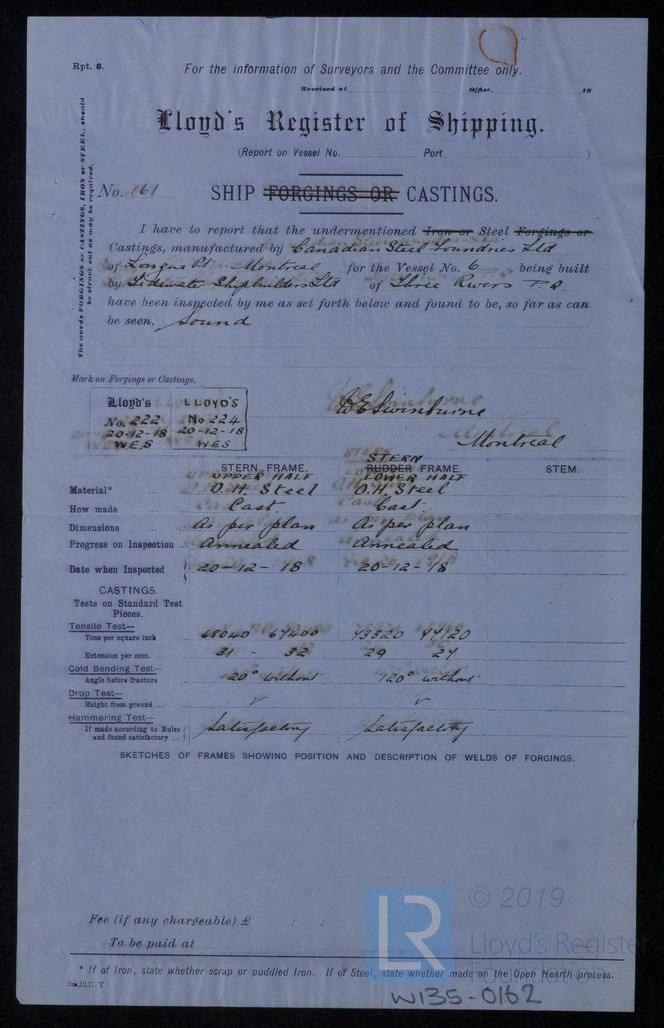 Rpt. 6.
For the information of Surveyors and the Committee only.
Received at Office, 19
Lloyd's Register of Shipping.
(Report on Vessel No. Port )
The words FORGINGS or CASTINGS, IRON or STEEL, should
be struck out as may be required.
No. 161
SHIP FORGINGS OR CASTINGS.
I have to report that the undermentioned Iron or Steel Forgings or
Castings, manufactured by Canadian Steel Foundries Ltd
of Longue Pt. Montreal for the Vessel No. 6 being built
by Tidewater Shipbuilders Ltd of Three Rivers P.Q
have been inspected by me as set forth below and found to be, so far as can
be seen, sound
Mark on Forgings or Castings.
Lloyd's
No. 222
20-12-18
WES
LLOYD'S
No 224
20-12-18
WES
W E Swinburne
Montreal
STERN FRAME.
UPPER HALF
STERN
RUDDER FRAME.
LOWER HALF
STEM.
Material* ... O.H. Steel O.H. Steel
How made ... Cast. Cast.
Dimensions ... As per plan As per plan
Progress on Inspection ... Annealed Annealed
Date when Inspected 20-12-18 20-12-18
CASTINGS.
Tests on Standard Test
Pieces.
Tensile Test—
Tons per square inch 67400
Extension per cent. ... 31 - 32 29 27
Cold Bending Test—
Angle before fracture 120° without 120° without
Drop Test—
Height from ground ... ✓ ✓
Hammering Test—
If made according to Rules
and found satisfactory ... Satisfactory Satisfactory
SKETCHES OF FRAMES SHOWING POSITION AND DESCRIPTION OF WELDS OF FORGINGS.
Fee (if any chargeable) £ : :
To be paid at
* If of Iron, state whether scrap or puddled Iron. If of Steel, state whether made on the Open Hearth process.
2m,12,17. T
W135-0162
LR
© 2019
Lloyd's Register
Foundation